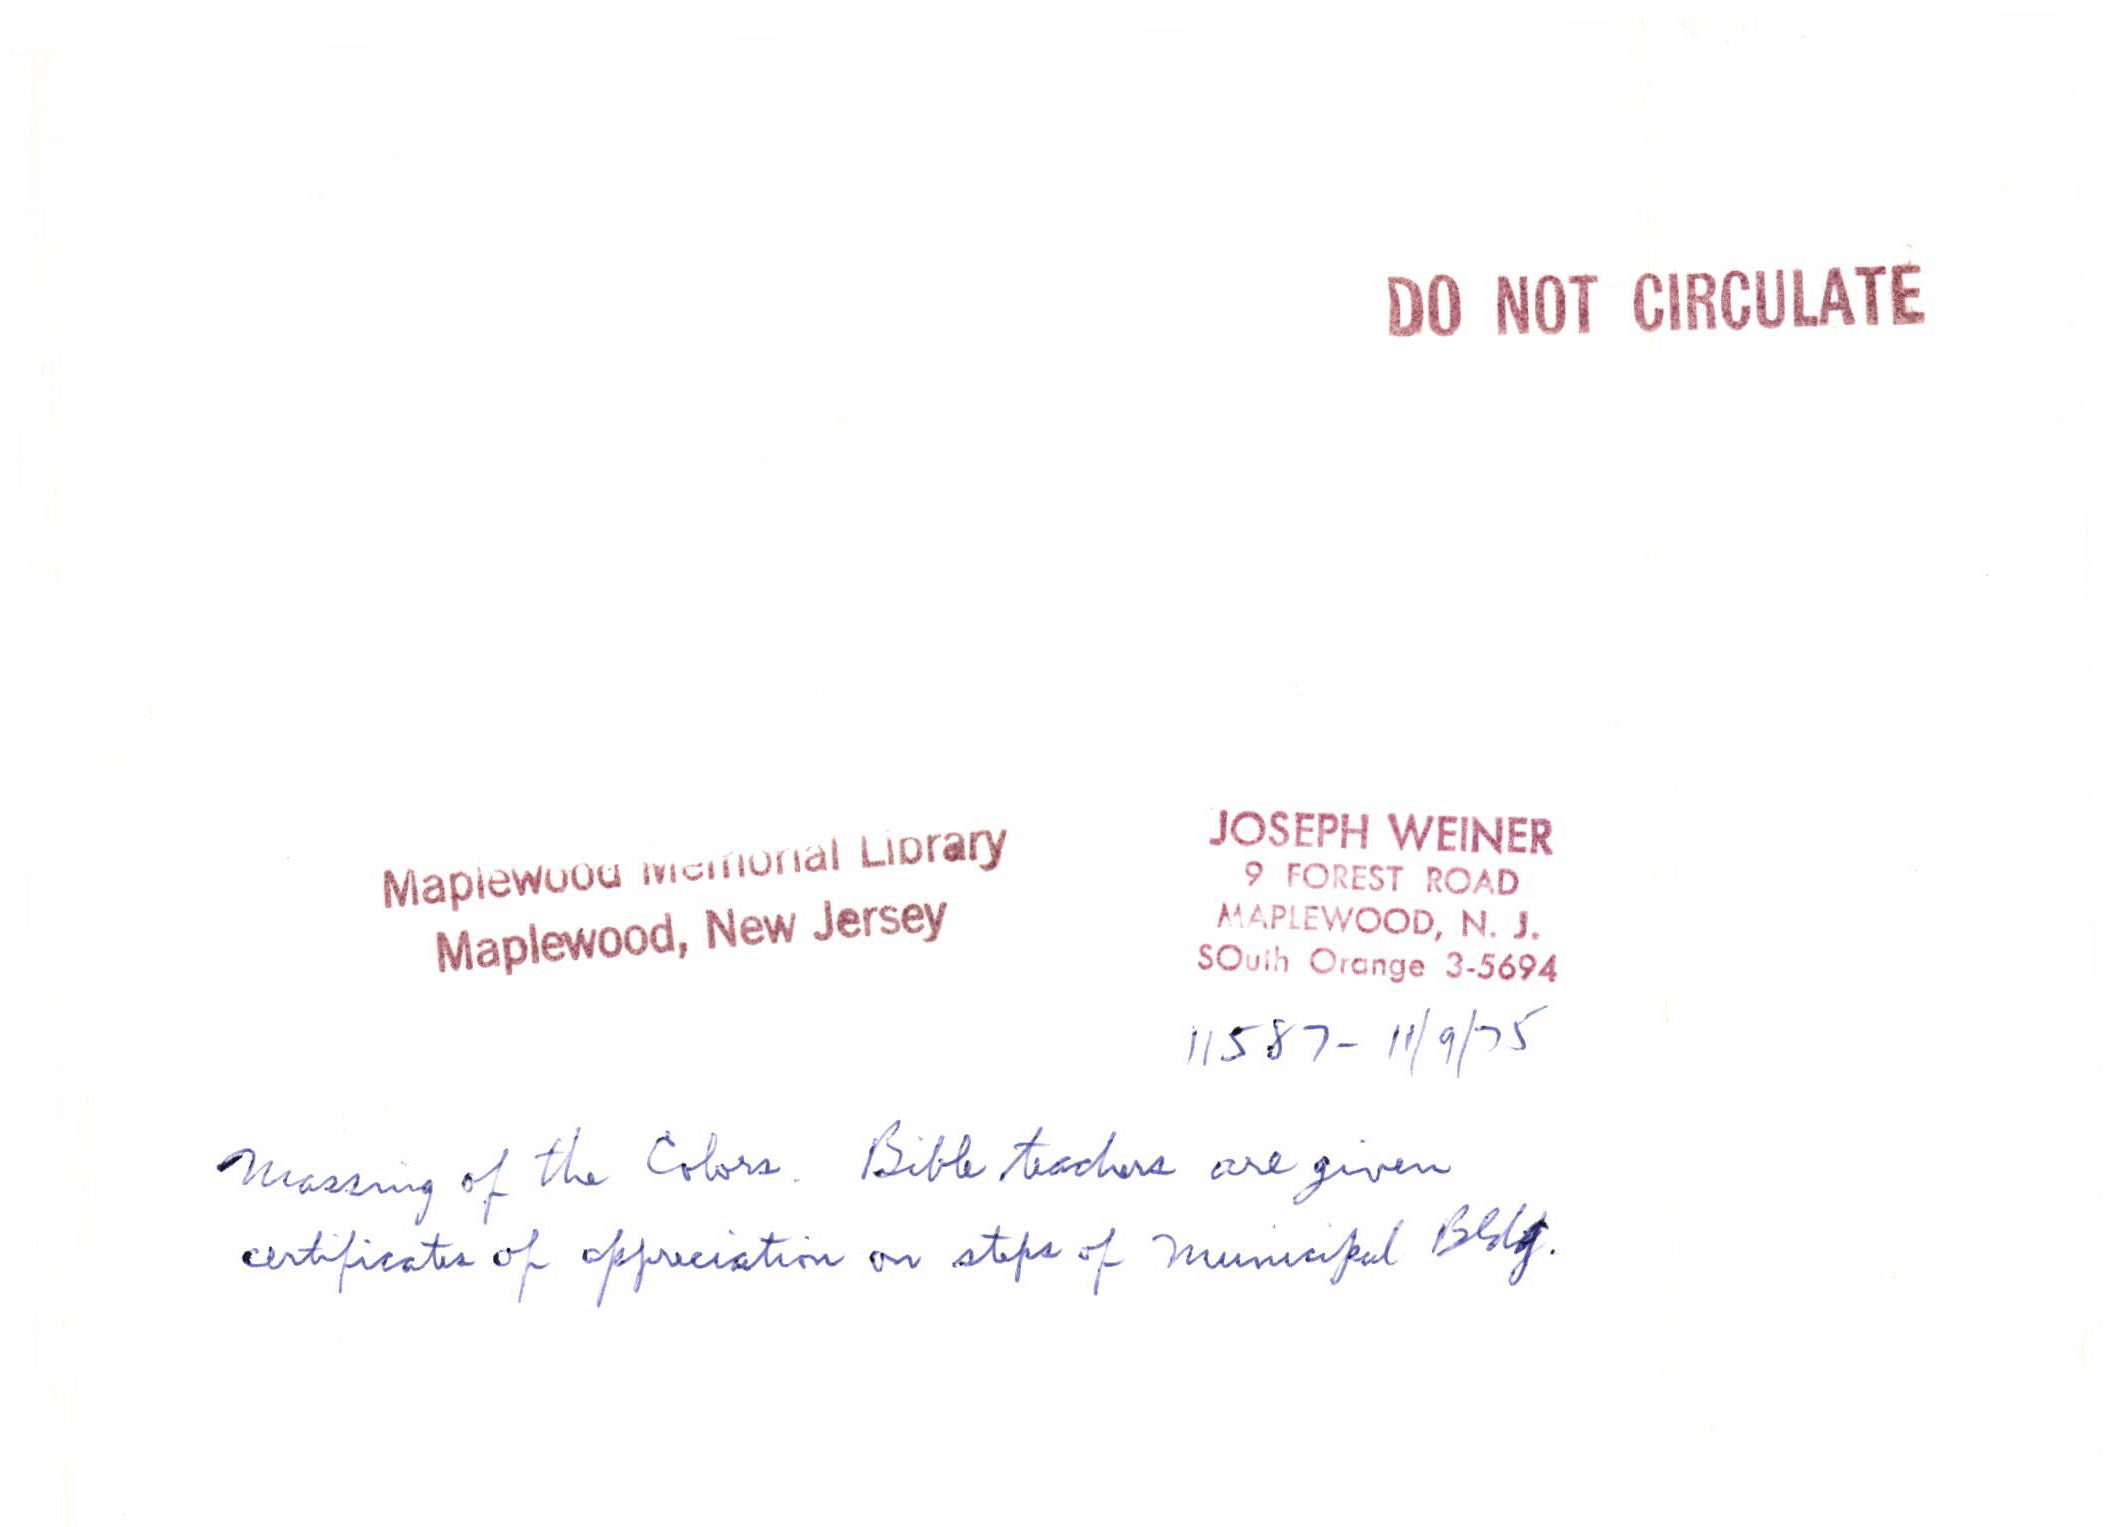 DO NOT CIRCULATE
Maplewood Memorial Library
Maplewood, New Jersey
JOSEPH WEINER
9 FOREST ROAD
MAPLEWOOD, N. J.
SOuth Orange 3-5694
11587- 11/9/75
Massing of the Colors. Bible teachers are given
certificates of appreciation on steps of Municipal Bldg.